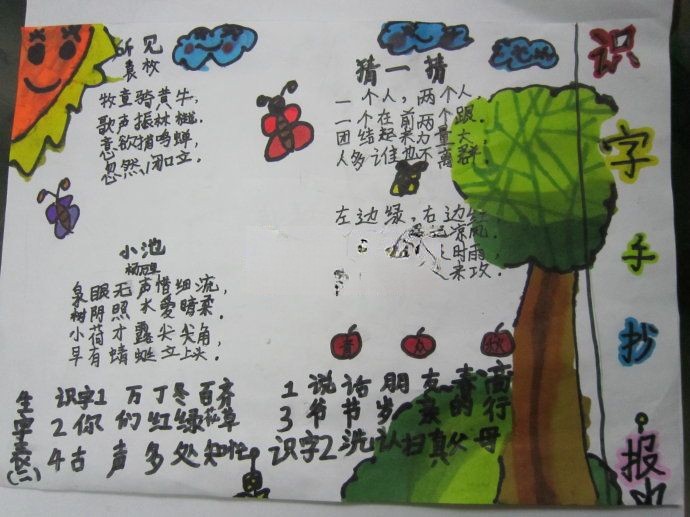 识字手抄报
所见
袁枚
牧童骑黄牛，
歌声振林樾。
意欲捕鸣蝉
忽然闭口立。
猜一猜
一个人，两个人，
一个在前一个跟。
团结起来力量大
人多谁也不离群.
左边绿，右边红
起凉风.
时雨,
来攻.
小池
杨万里
泉眼无声惜细流，
树阴照水爱晴柔.
小荷才露尖尖角
早有蜻蜓立上头.
众 秋
生字表(二)
识字1 万丁冬百齐
2 你们红绿花草
4 古声多处知忙
1 说话朋友春高
3 爷节岁亲的行
识字2 洗认扫真父母